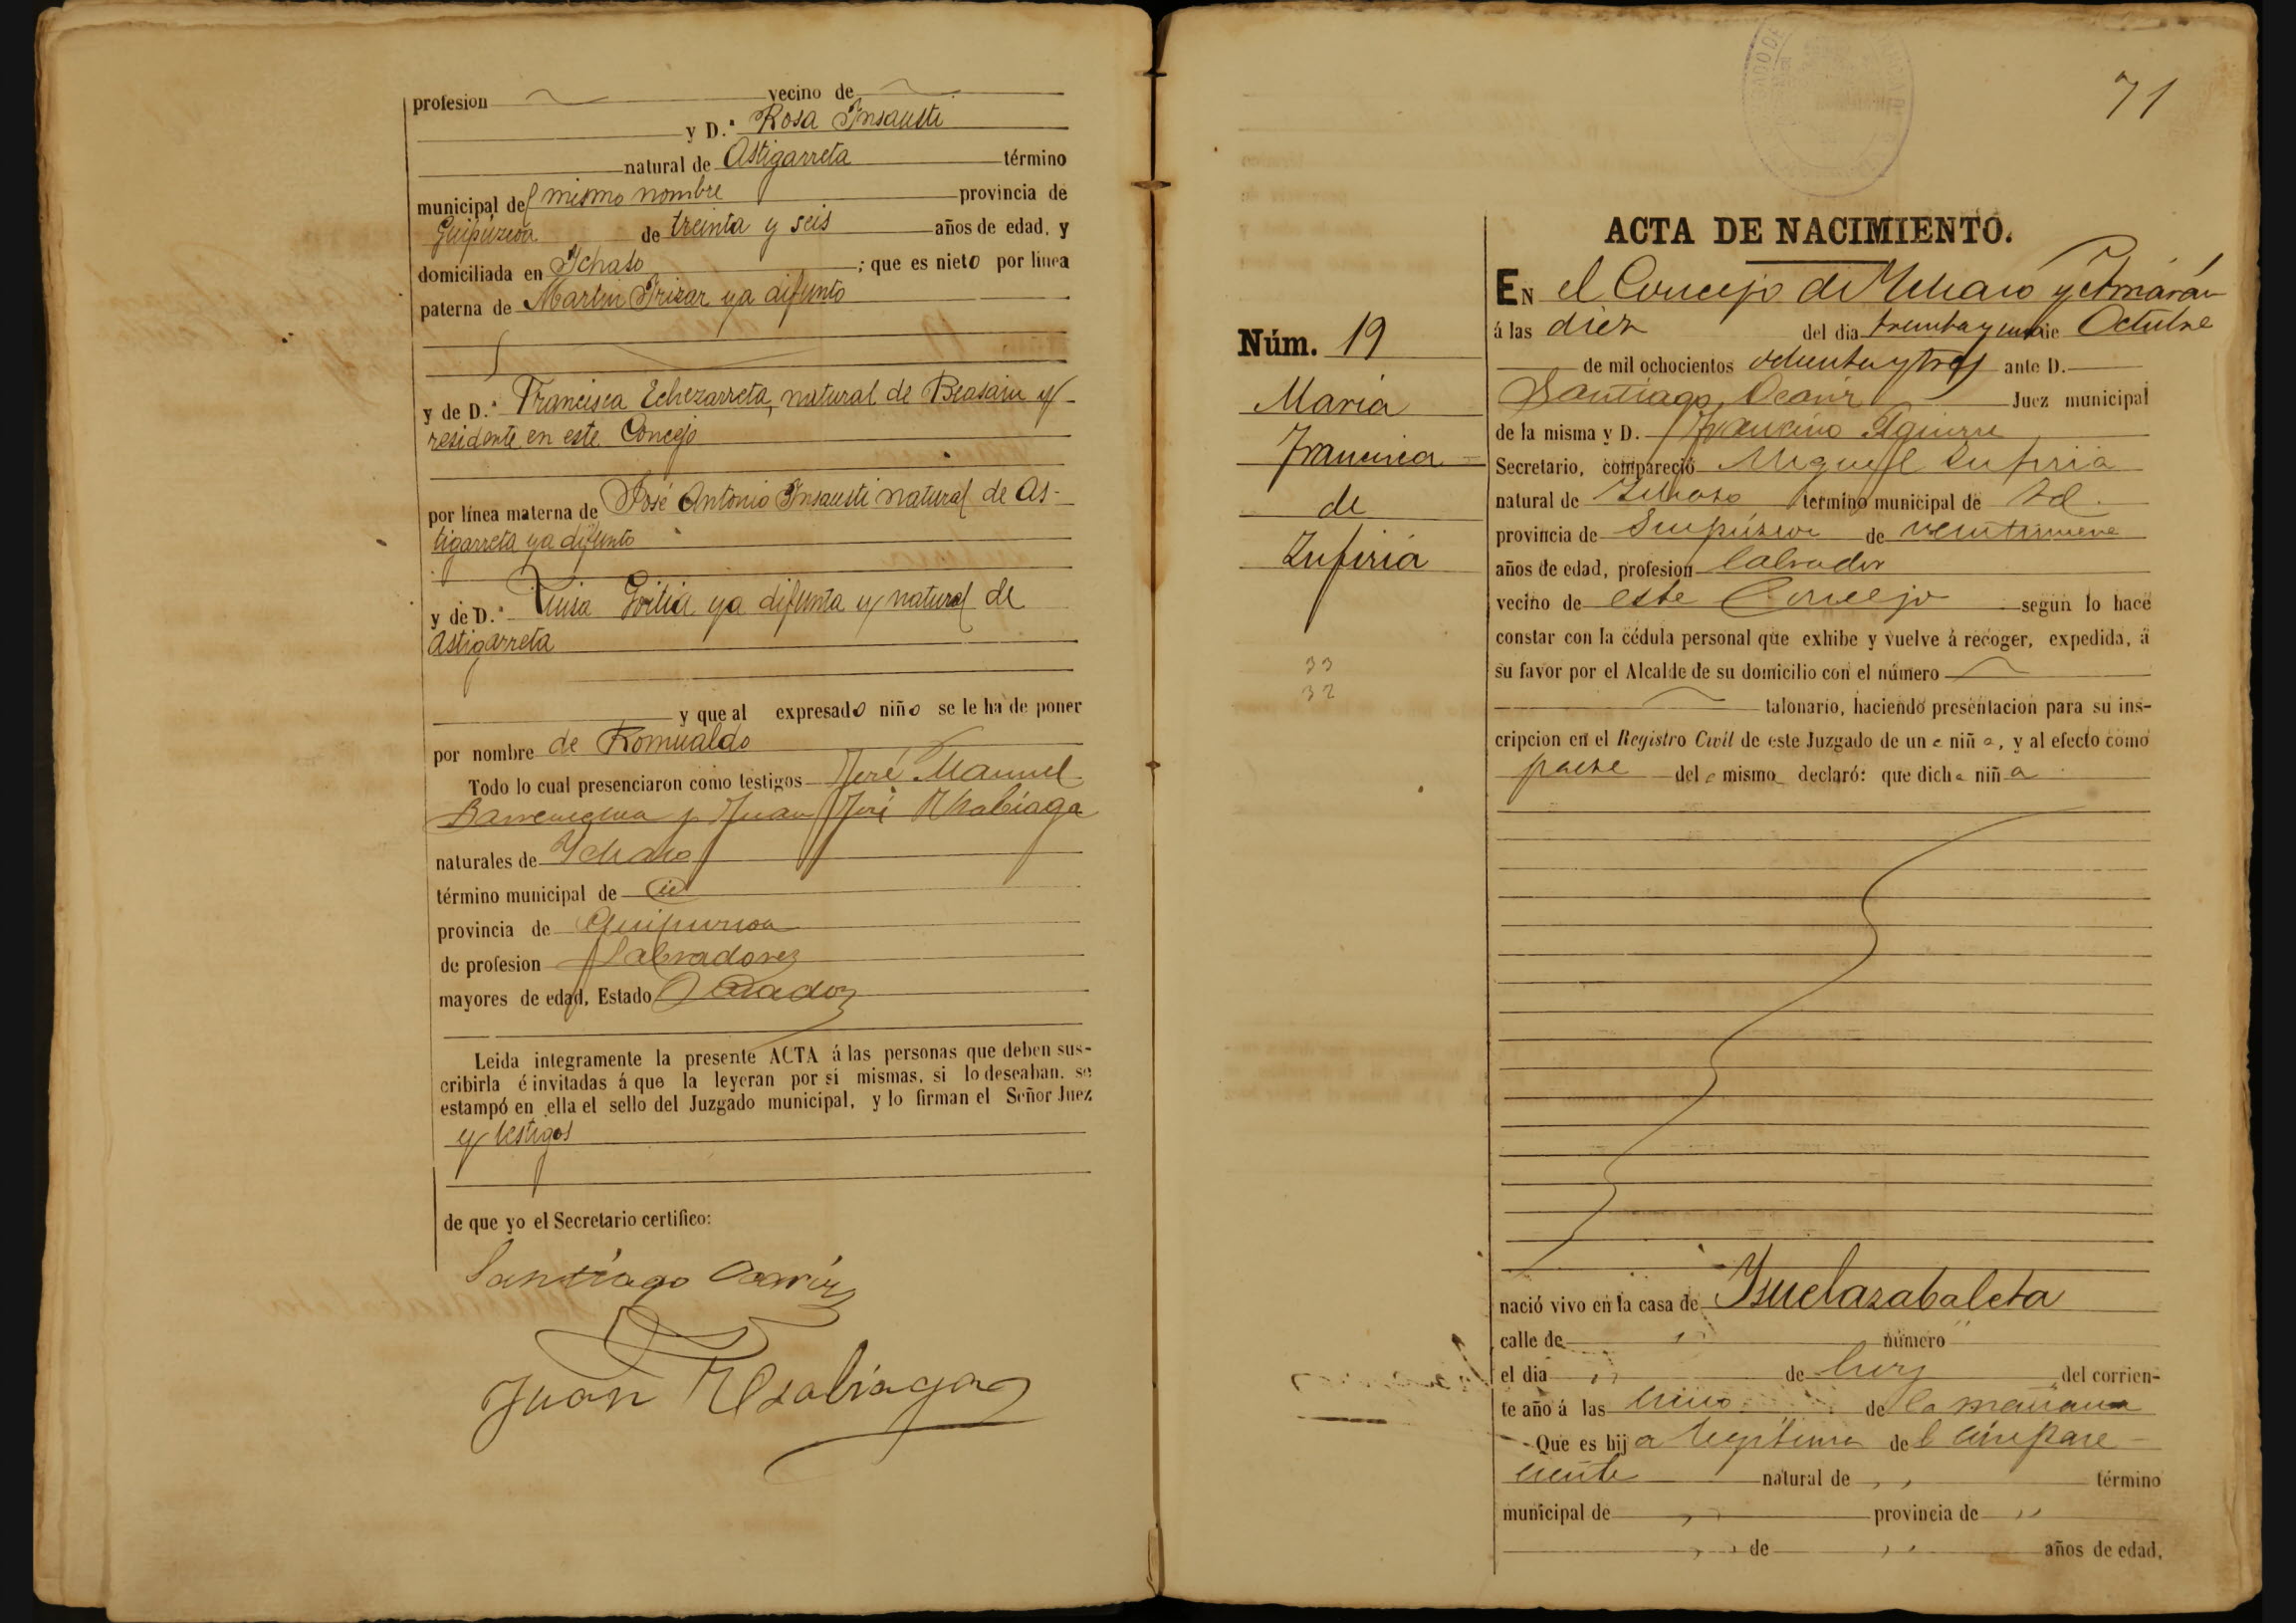 profesion vecino de
y D.ª Rosa Insausti
natural de Astigarreta término
municipal del mismo nombre provincia de
Guipúzcoa de treinta y seis años de edad, y
domiciliada en Ichaso ; que es nieto por línea
paterna de Martin Irizar ya difunto
y de D.ª Francisca Echezarreta, natural de Beasain y
residente en este Concejo
por línea materna de José Antonio Insausti natural de As-
tigarreta ya difunto
y de D.ª Luisa Goitia ya difunta y natural de
Astigarreta
y que al expresado niño se le ha de poner
por nombre de Romualdo
Todo lo cual presenciaron como testigos José Manuel
y Juan José Usabiaga
naturales de Ychaso
término municipal de id
provincia de Guipuzcoa
de profesion Labradores
mayores de edad, Estado Casados
Leida integramente la presente ACTA á las personas que deben sus-
cribirla é invitadas á que la leyeran por si mismas, si lo deseaban, se
estampó en ella el sello del Juzgado municipal, y lo firman el Señor Juez
y testigos
de que yo el Secretario certifico:
Santiago Ocariz
Juan Usabiaga
71
ACTA DE NACIMIENTO.
EN el Concejo de Ychaso y Arriarán
á las diez del dia treinta y uno de Octubre
de mil ochocientos ochenta y tres ante D.
Santiago Ocariz Juez municipal
de la misma y D. Francisco Aguirre
Secretario, compareció Miguel Zufiria
natural de Ichaso término municipal de Id.
provincia de Guipúzcoa de veintinueve
años de edad, profesion labrador
vecino de este Concejo según lo hace
constar con la cédula personal que exhibe y vuelve á recoger, expedida, á
su favor por el Alcalde de su domicilio con el número
talonario, haciendo presentacion para su ins-
cripcion en el Registro Civil de este Juzgado de una niña, y al efecto como
padre del mismo declaró: que dicha niña
nació vivo en la casa de Ysuelazabaleta
calle de " número "
el dia " de hoy del corrien-
te año á las cinco de la mañana
Que es hija legitima del compare-
ciente natural de " término
municipal de " provincia de "
" de " años de edad,
Núm. 19
Maria
Francisca
de
Zufiria
33
32